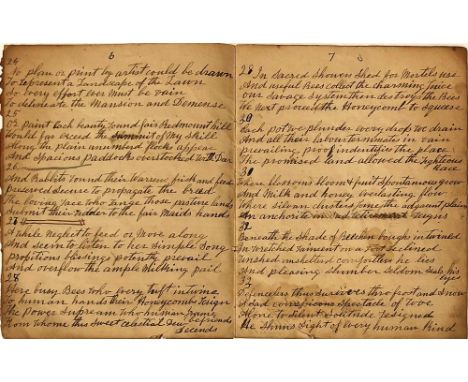 6
24
No plan or print by artist could be drawn
To represent a Landscape of the Lawn
So every effort ever must be vain
To delineate the Mansion and Demense
25
To Paint each beauty round fair Redmount hill
Would far exceed the summit of My skill
Along the plain unnumbered flocks appear
And Spacious paddocks overstocked With
26
And Rabbits round their Warren frisk and feed
preserved secure to propagate the breed
The loving race who range those pasture lands
Submit their udder to the fair Maids hands
27
A while Neglect to feed or Move along
And seem to listen to her Simple Song
potent prevail
And overflow the ample Milking pail
28
Here busy Bees who every tuft
To human hands their Honeycomb Resign
The Power Supream who human frame
From whome this Sweet celestial Dew
descends
7 8
28 In Sacred Showers Shed for Mortals use
And useful Bees collect the charming juice
our Savage System then destroys the Bees
We next proceed the Honeycomb to Squeese
29
Each pot we plunder every drop we drain
And all their labour terminate in pain
prevailing proof indentifys the place
The promised land allowed the righteous
Race
30
Where blossoms bloom & fruit Spontaneous grow
And Milk and honey everlasting flow
Where silvan clusters Some the adjoint plain
An anchorite in reigns
32
Beneath the Shade of Between bough intwined
In Wretched raiment on a reclined
lies
And pleasing Slumber Seldom Seals his
eyes
33
Defenceless thus Survives thro frost and Snow
A Sad conspicuous Spectacle of Woe
Alone to Silent Solitude resigned
He Shuns Sight of every human kind